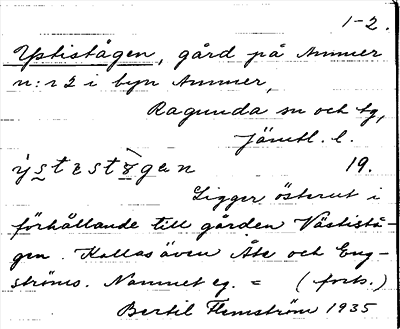 1-2.
Ystistågen, gård på Ammer
n:r 2 i byn Ammer,
Ragunda sn och tg,
Jämtl. l.
ẏstɛstɡ̀an 19.
Ligger österut i
förhållande till gården Västistå-
gen. Kallas även Åke och Eng-
ströms. Namnet eg. = (forts.)
Bertil Flemström 1935